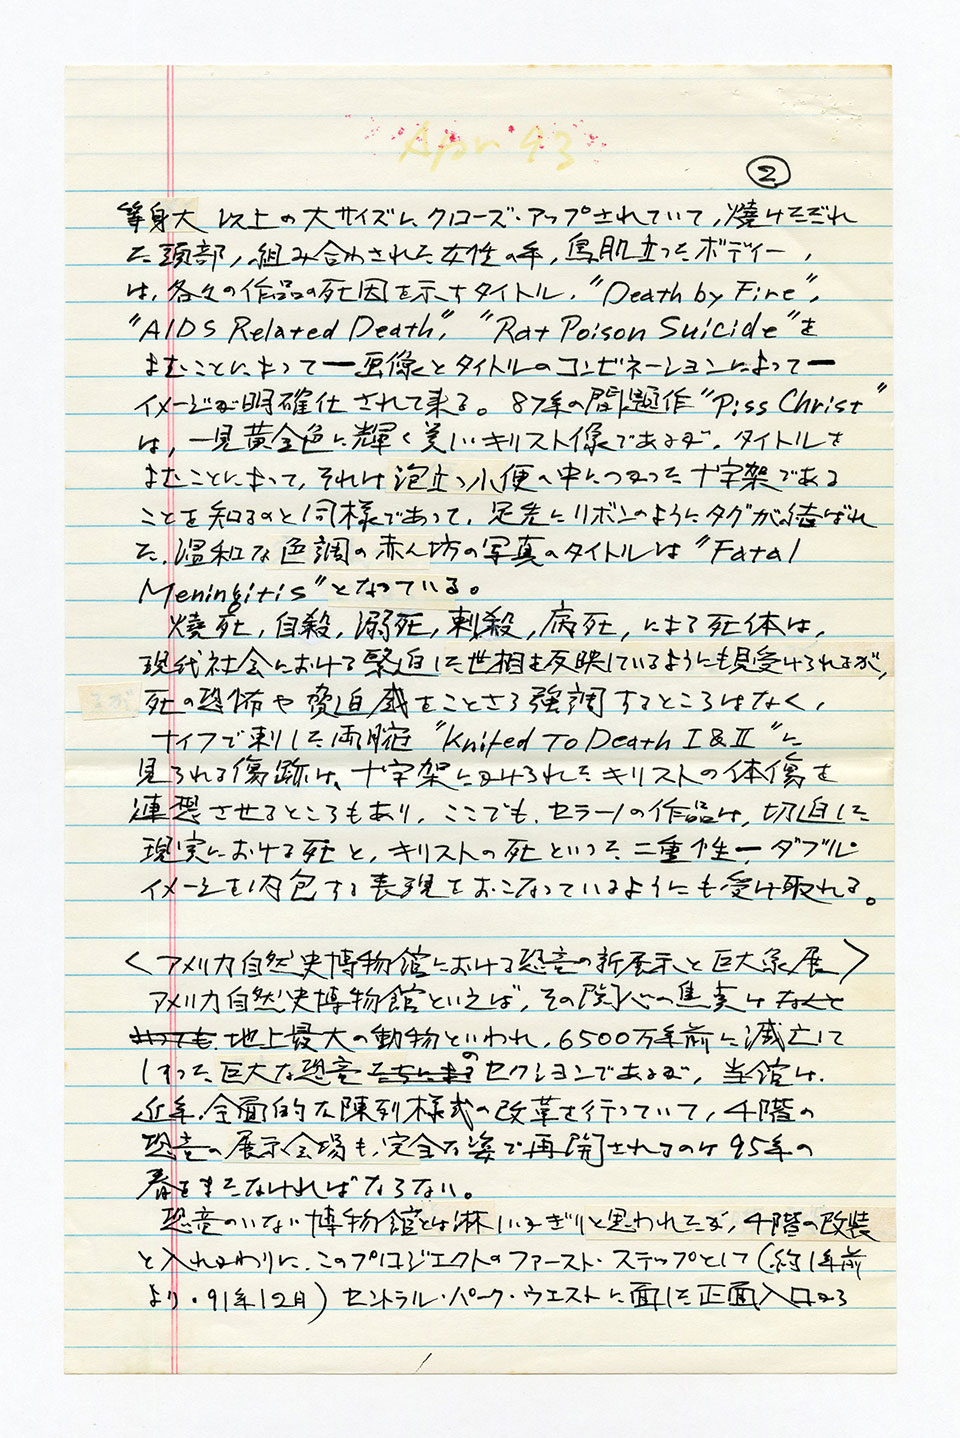 Apr 93
②
等身大以上の大サイズに、クローズ・アップされていて、焼けただれ
た頭部、組み合わされた女性の手、鳥肌立ったボディー、
は、各々の作品の死因を示すタイトル、"Death by Fire",
"AIDS Related Death", "Rat Poison Suicide"を
よむことによって ー画像とタイトルのコンビネーションによってー
イメージが明確化されて来る。87年の問題作"Piss Christ"
は、一見黄金色に輝く美しいキリスト像であるが、タイトルを
よむことによって、それは泡立つ小便の中につかった十字架である
ことを知るのと同様であって、足先にリボンのようにタグが結ばれ
た、温和な色調の赤ん坊の写真のタイトルは"Fatal
Meningitis"となっている。
焼死,自殺,溺死,刺殺,病死,による死体は、
現代社会における緊迫した世相を反映しているようにも見受けられるが、
死の恐怖や脅迫感をことさら強調するところはなく、
ナイフで刺した両腕"Knifed To Death I & II"に
見られる傷跡は、十字架にかけられたキリストの体傷を
連想させるところもあり、ここでも、セラーノの作品は、切迫した
現実における死と、キリストの死といった二重性ー,ダブル・
イメージを内包する表現をおこなっているようにも受け取れる。
〈アメリカ自然史博物館における恐竜の新展示と巨大象展〉
アメリカ自然史博物館といえば、その関心の焦点はなんと
地上最大の動物といわれ、6500万年前に滅亡して
しまった巨大な恐竜のセクションであるが、当館は、
近年、全面的な陳列様式の改革を行っていて、4階の
恐竜の展示会場も、完全な姿で再開されるのは95年の
春をまたなければならない。
恐竜のいない博物館とは淋しいかぎりと思われたが、4階の改装
と入れかわりに、このプロジェクトのファースト・ステップとして(約1年前
より・91年12月)セントラル・パーク・ウエストに面した正面入口から